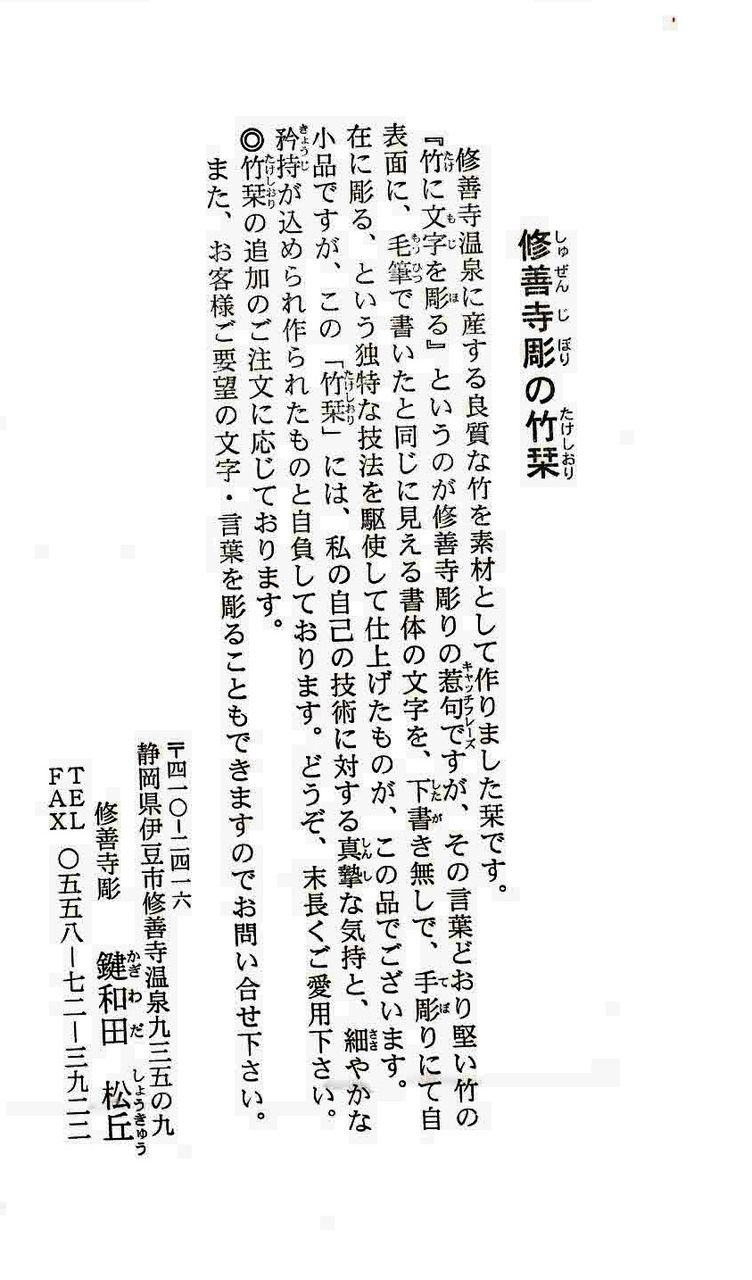 修善寺彫の竹栞
修善寺温泉に産する良質な竹を素材として作りました栞です。
『竹に文字を彫る』というのが修善寺彫りの惹句ですが、その言葉どおり堅い竹の
表面に、毛筆で書いたと同じに見える書体の文字を、下書き無しで、手彫りにて自
在に彫る、という独特な技法を駆使して仕上げたものが、この品でございます。
小品ですが、この「竹栞」には、私の自己の技術に対する真摯な気持と、細やかな
矜持が込められ作られたものと自負しております。どうぞ、末長くご愛用下さい。
◎竹栞の追加のご注文に応じております。
また、お客様ご要望の文字・言葉を彫ることもできますのでお問い合せ下さい。
〒四一〇－二四一六
静岡県伊豆市修善寺温泉九三五の九
修善寺彫 鍵和田 松丘
TEL
FAX 〇五五八－七二－三九二二